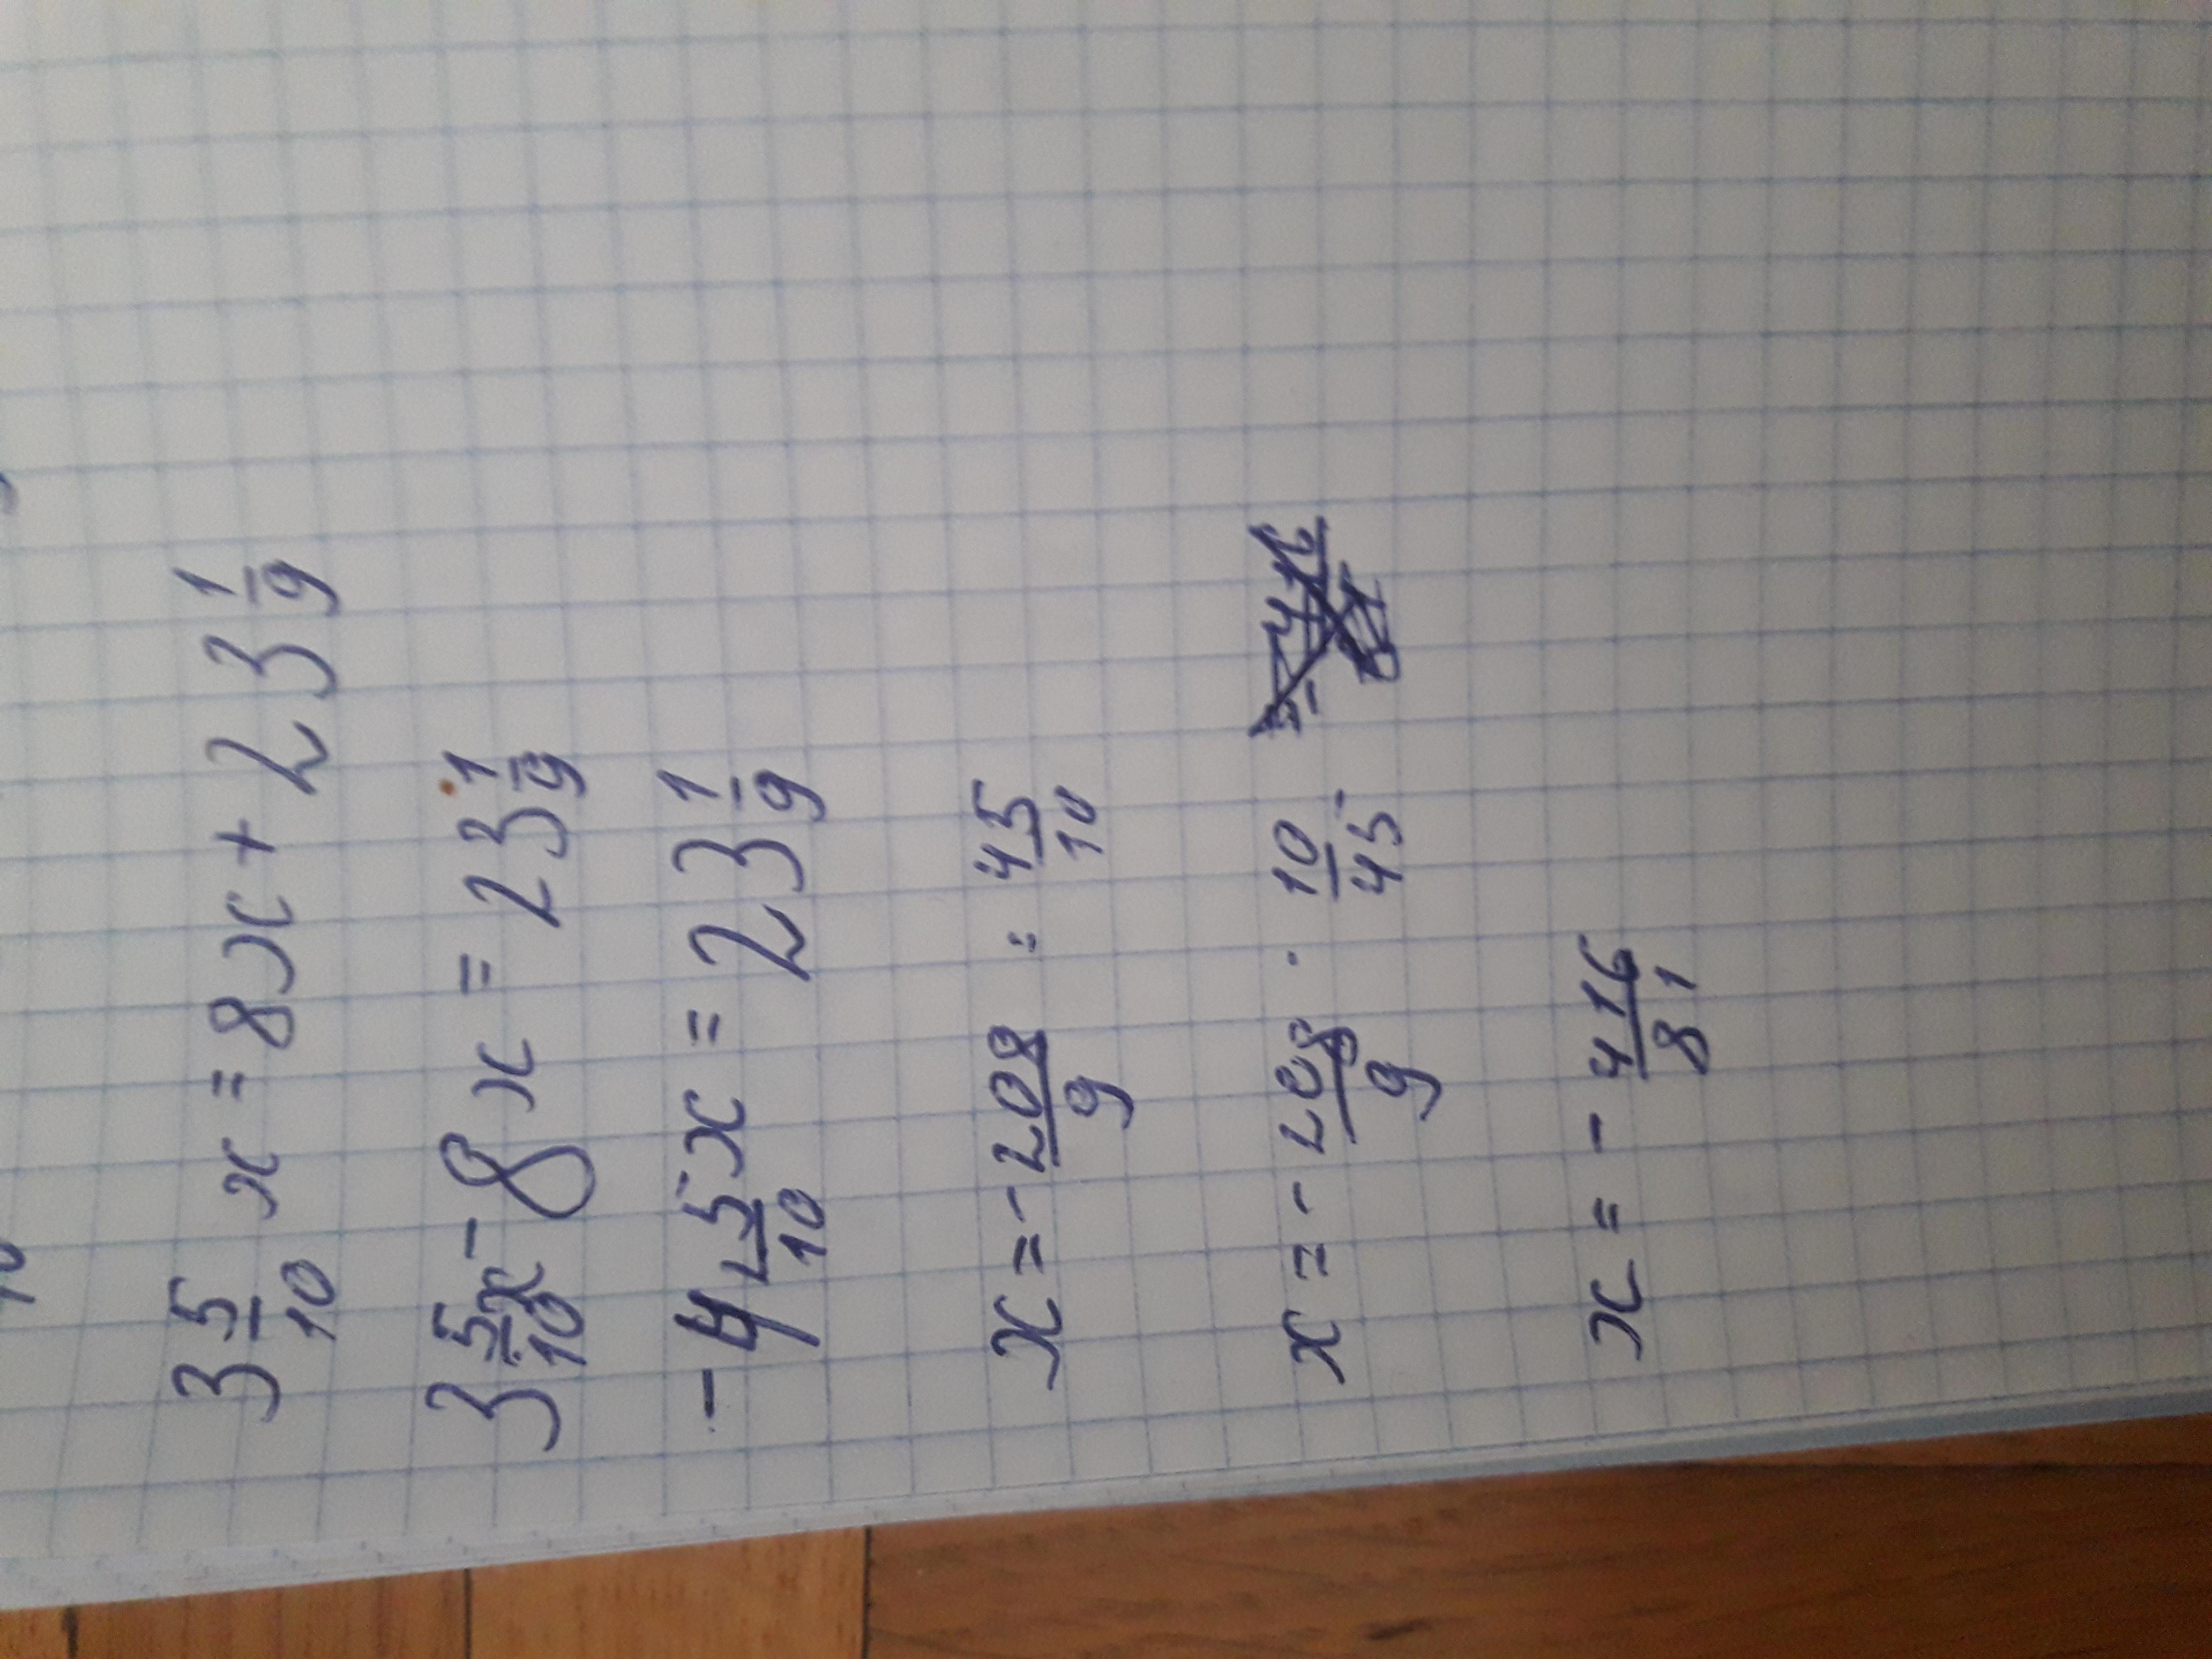 3 5/10 x = 8x + 23 1/9
3 5/10 x - 8x = 23 1/9
-4 5/10 x = 23 1/9
x = - 208/9 : 45/10
x = - 208/9 · 10/45
x = - 416/81